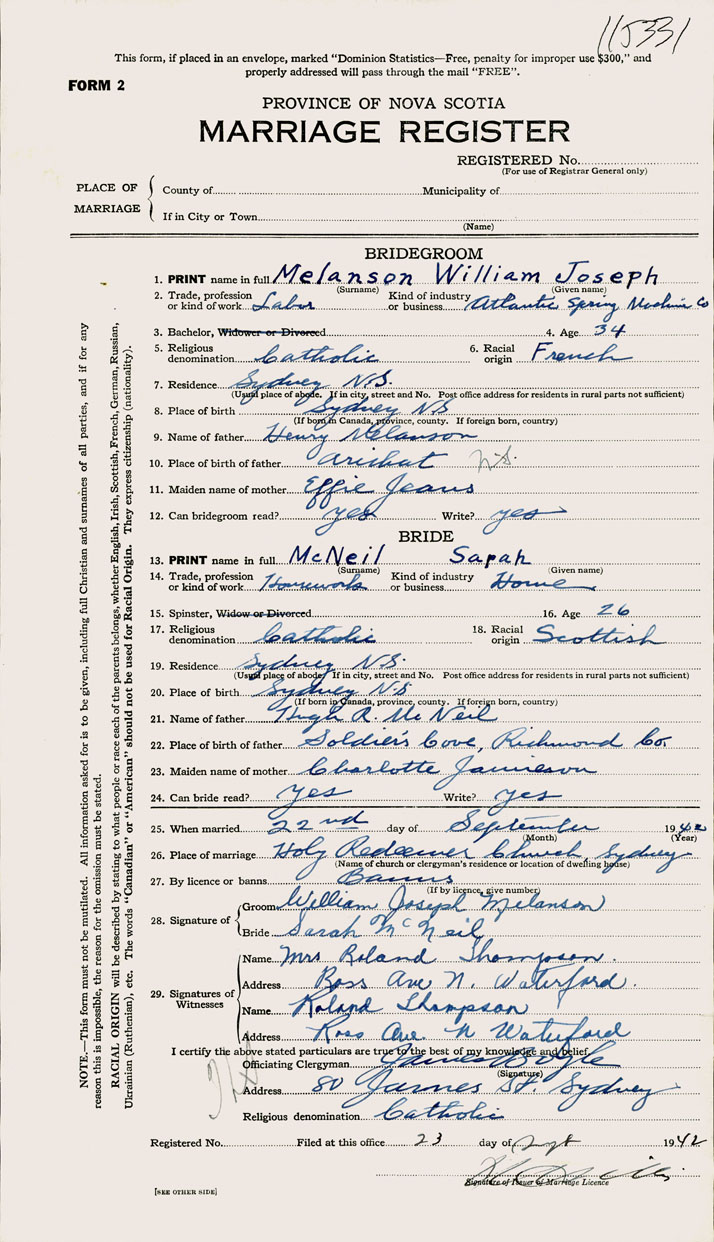 115331
This form, if placed in an envelope, marked "Dominion Statistics—Free, penalty for improper use $300," and
properly addressed will pass through the mail "FREE".
FORM 2
PROVINCE OF NOVA SCOTIA
MARRIAGE REGISTER
REGISTERED No.
(For use of Registrar General only)
PLACE OF MARRIAGE
County of Municipality of
If in City or Town
(Name)
BRIDEGROOM
1. PRINT name in full Melanson William Joseph
(Surname) (Given name)
2. Trade, profession or kind of work Labor Kind of industry or business Atlantic Spring Machine Co
3. Bachelor, Widower or Divorced 4. Age 34
5. Religious denomination Catholic 6. Racial origin French
7. Residence Sydney N.S.
(Usual place of abode. If in city, street and No. Post office address for residents in rural parts not sufficient)
8. Place of birth Sydney NS
(If born in Canada, province, county. If foreign born, country)
9. Name of father Henry Melanson
10. Place of birth of father Arichat N.S.
11. Maiden name of mother Effie Jeans
12. Can bridegroom read? yes Write? yes
BRIDE
13. PRINT name in full McNeil Sarah
(Surname) (Given name)
14. Trade, profession or kind of work Housework Kind of industry or business Home
15. Spinster, Widow or Divorced 16. Age 26
17. Religious denomination Catholic 18. Racial origin Scottish
19. Residence Sydney N.S.
(Usual place of abode. If in city, street and No. Post office address for residents in rural parts not sufficient)
20. Place of birth Sydney N.S
(If born in Canada, province, county. If foreign born, country)
21. Name of father Hugh R. McNeil
22. Place of birth of father Soldier's Cove, Richmond Co.
23. Maiden name of mother Charlotte Jamieson
24. Can bride read? yes Write? yes
25. When married 22nd day of September 1942
(Month) (Year)
26. Place of marriage Holy Redeemer Church, Sydney
(Name of church or clergyman's residence or location of dwelling house)
27. By licence or banns Banns
(If by licence, give number)
28. Signature of Groom William Joseph Melanson
Bride Sarah McNeil
29. Signatures of Witnesses
Name Mrs Roland Thompson.
Address Ross Ave N. Waterford.
Name Roland Thompson
Address Ross Ave. N Waterford
I certify the above stated particulars are true to the best of my knowledge and belief
Officiating Clergyman James Boyle
(Signature)
Address 80 James St. Sydney
Religious denomination Catholic
Registered No. Filed at this office 23 day of Sept 1942
Signature of Issuer of Marriage Licence
[SEE OTHER SIDE]
NOTE.—This form must not be mutilated. All information asked for is to be given, including full Christian and surnames of all parties, and if for any
reason this is impossible, the reason for the omission must be stated.
RACIAL ORIGIN will be described by stating to what people or race each of the parents belongs, whether English, Irish, Scottish, French, German, Russian,
Ukrainian (Ruthenian), etc. The words "Canadian" or "American" should not be used for Racial Origin. They express citizenship (nationality).